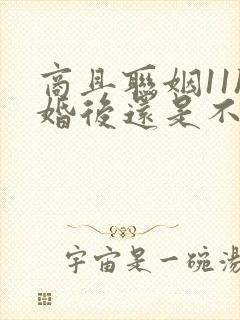 商且聯姻11
婚後還是不
宇宙是一碗湯